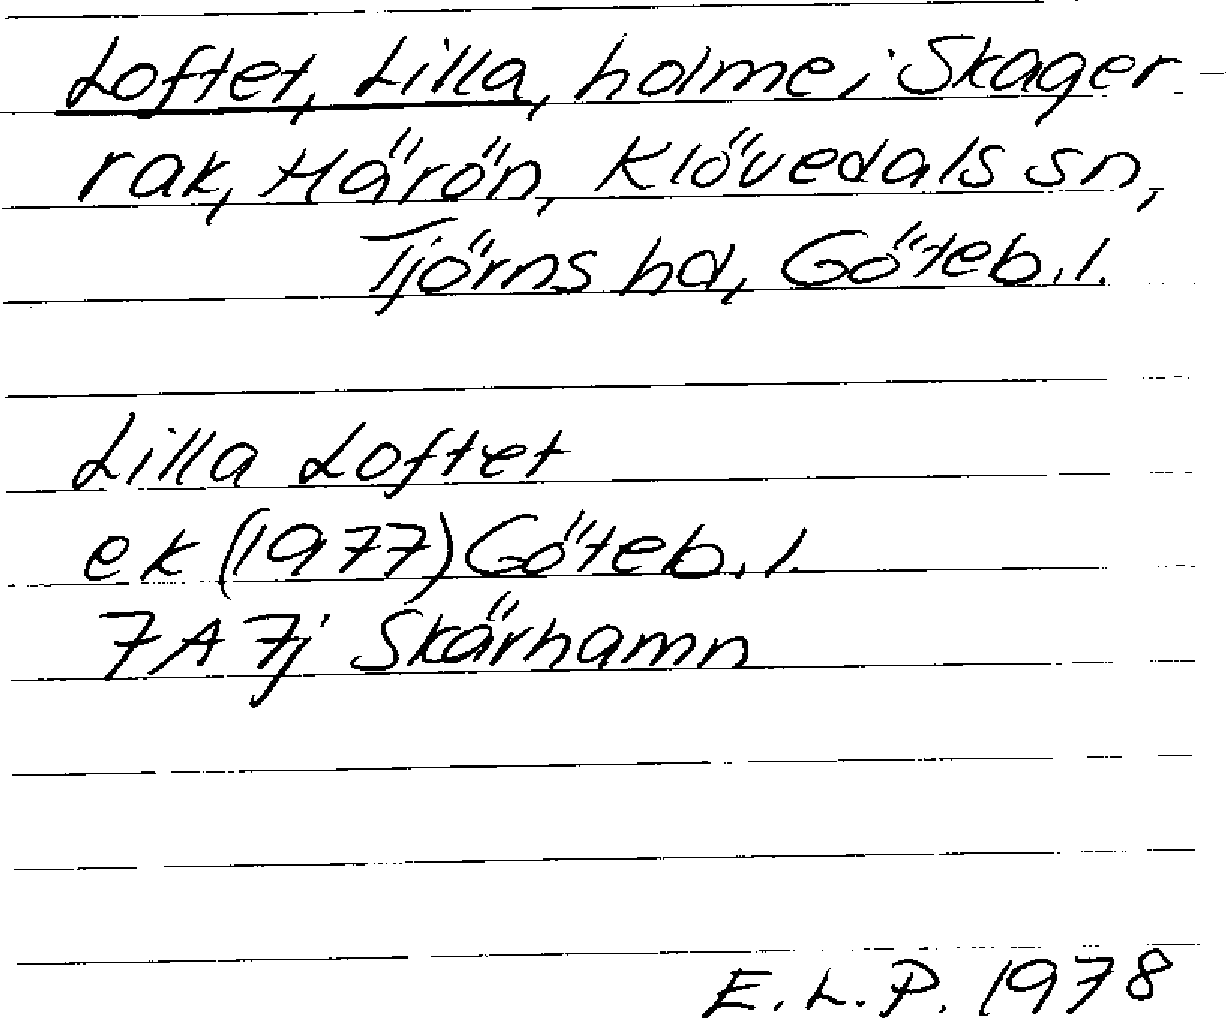 Loftet, Lilla, holme i Skager-
rak, Härön, Klövedals sn,
Tjörns hd, Göteb. l.
Lilla Loftet
ek (1977) Göteb. l.
7A 7j Skärhamn
E. L. P. 1978